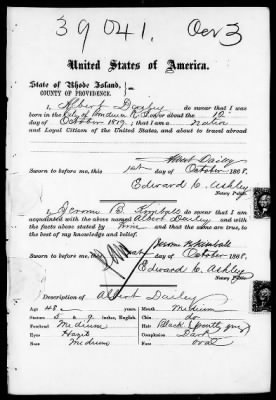 39041. Oct 3
United States of America.
State of Rhode Island,
COUNTY OF PROVIDENCE.
I, Albert Dailey do swear that I was
born in the City of R. I. on or about the 10
day of October 1819; that I am a native
and Loyal Citizen of the United States, and about to travel abroad
Albert Dailey
Sworn to before me, this 1st day of October 1868
Edward C. Ashley
Notary Public.
I, Jerome B. Kimball do swear that I am
acquainted with the above named Albert Dailey and with
the facts above stated by him and that the same are true, to
the best of my knowledge and belief.
Jerome B. Kimball
Sworn to before me, this 1st day of October 1868.
Edward C. Ashley
Notary Public.
Description of Albert Dailey
Age 48 years,
Stature 5 9 inches, English.
Forehead Medium
Eyes Hazel
Nose Medium
Mouth Medium
Chin do
Hair Black (partly grey)
Complexion Dark
Face oval